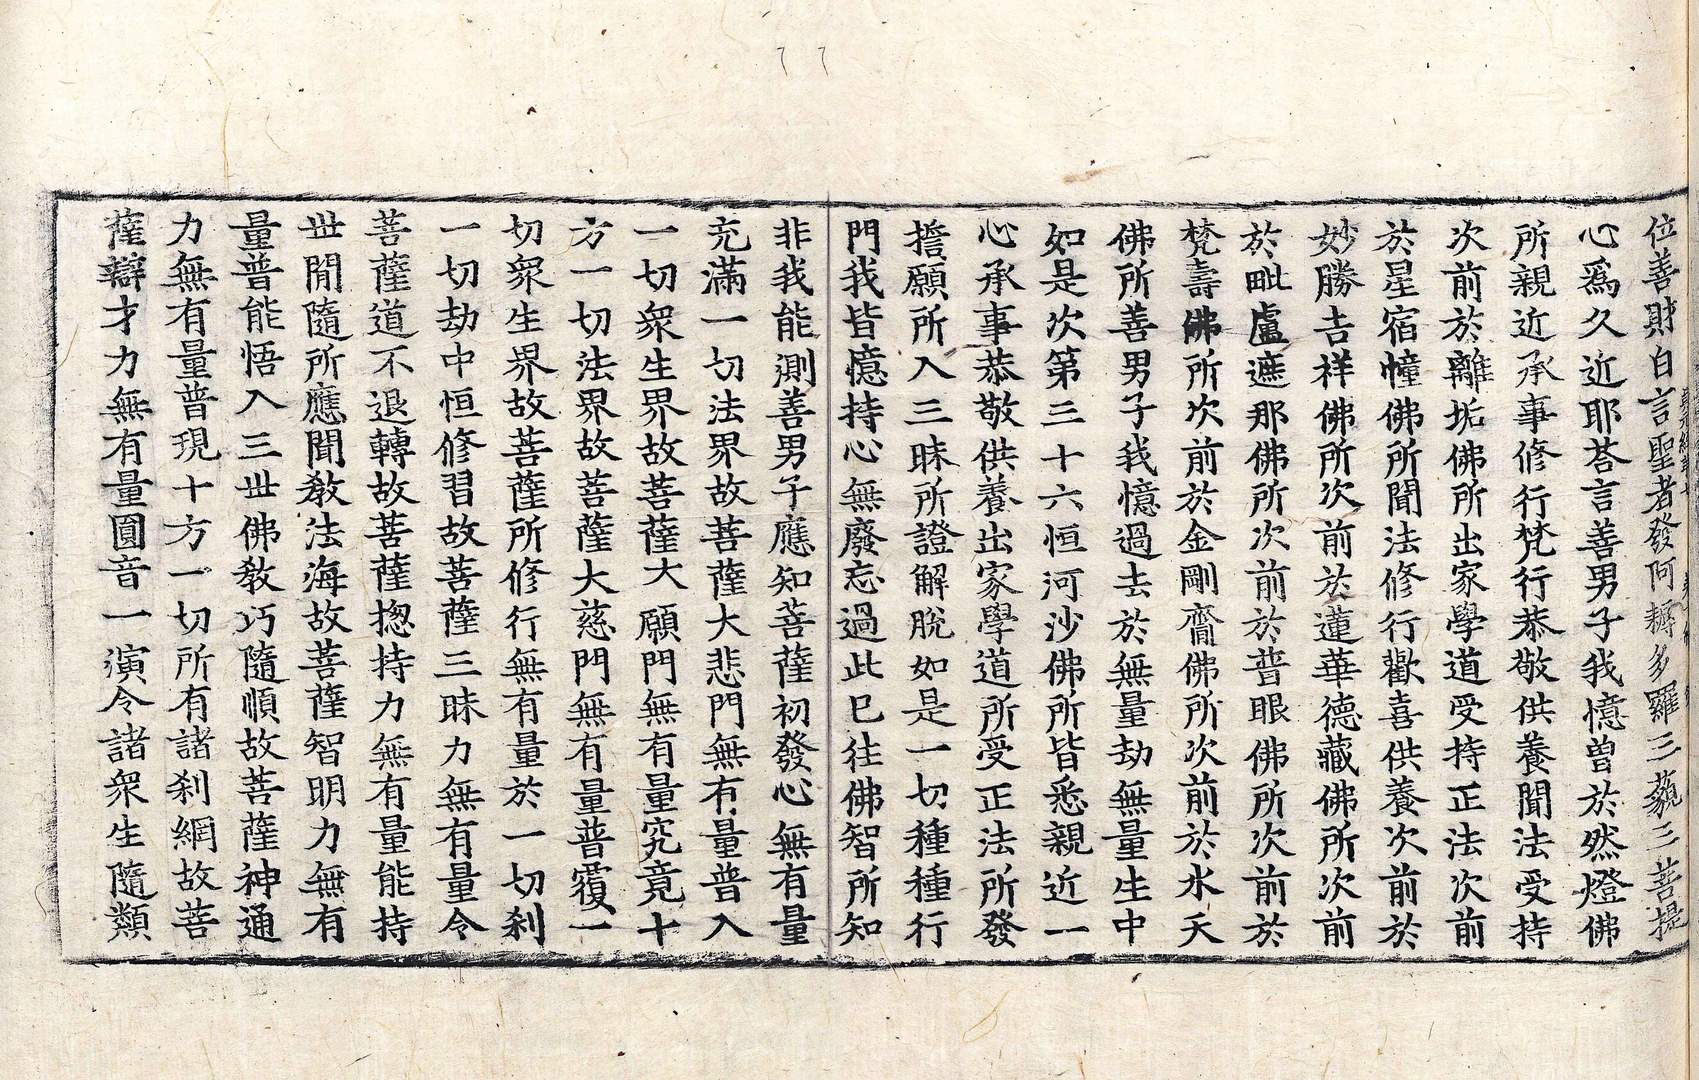 位善財白言聖者發阿耨多羅三藐三菩提
心爲久近耶荅言善男子我憶曾於然燈佛
所親近承事修行梵行恭敬供養聞法受持
次前於離垢佛所出家學道受持正法次前
於星宿幢佛所聞法修行歡喜供養次前於
妙勝吉祥佛所次前於蓮華德藏佛所次前
於毗盧遮那佛所次前於普眼佛所次前於
梵壽佛所次前於金剛齎佛所次前於水天
佛所善男子我憶過去於無量劫無量生中
如是次第三十六恒河沙佛所皆悉親近一
心承事恭敬供養出家學道所受正法所發
擔願所入三昧所證解脫如是一切種種行
門我皆憶持心無廢忘過此已往佛智所知
非我能測善男子應知菩薩初發心無有量
充滿一切法界故菩薩大悲門無有量普入
一切衆生界故菩薩大願門無有量究竟十
方一切法界故菩薩大慈門無有量普覆一
切衆生界故菩薩所修行無有量於一切刹
一切劫中恒修習故菩薩三昧力無有量令
菩薩道不退轉故菩薩揔持力無有量能持
世間隨所應聞敎法海故菩薩智明力無有
量普能悟入三世佛敎巧隨順故菩薩神通
力無有量普現十方一切所有諸刹網故菩
薩辯才力無有量圓音一演令諸衆生隨類